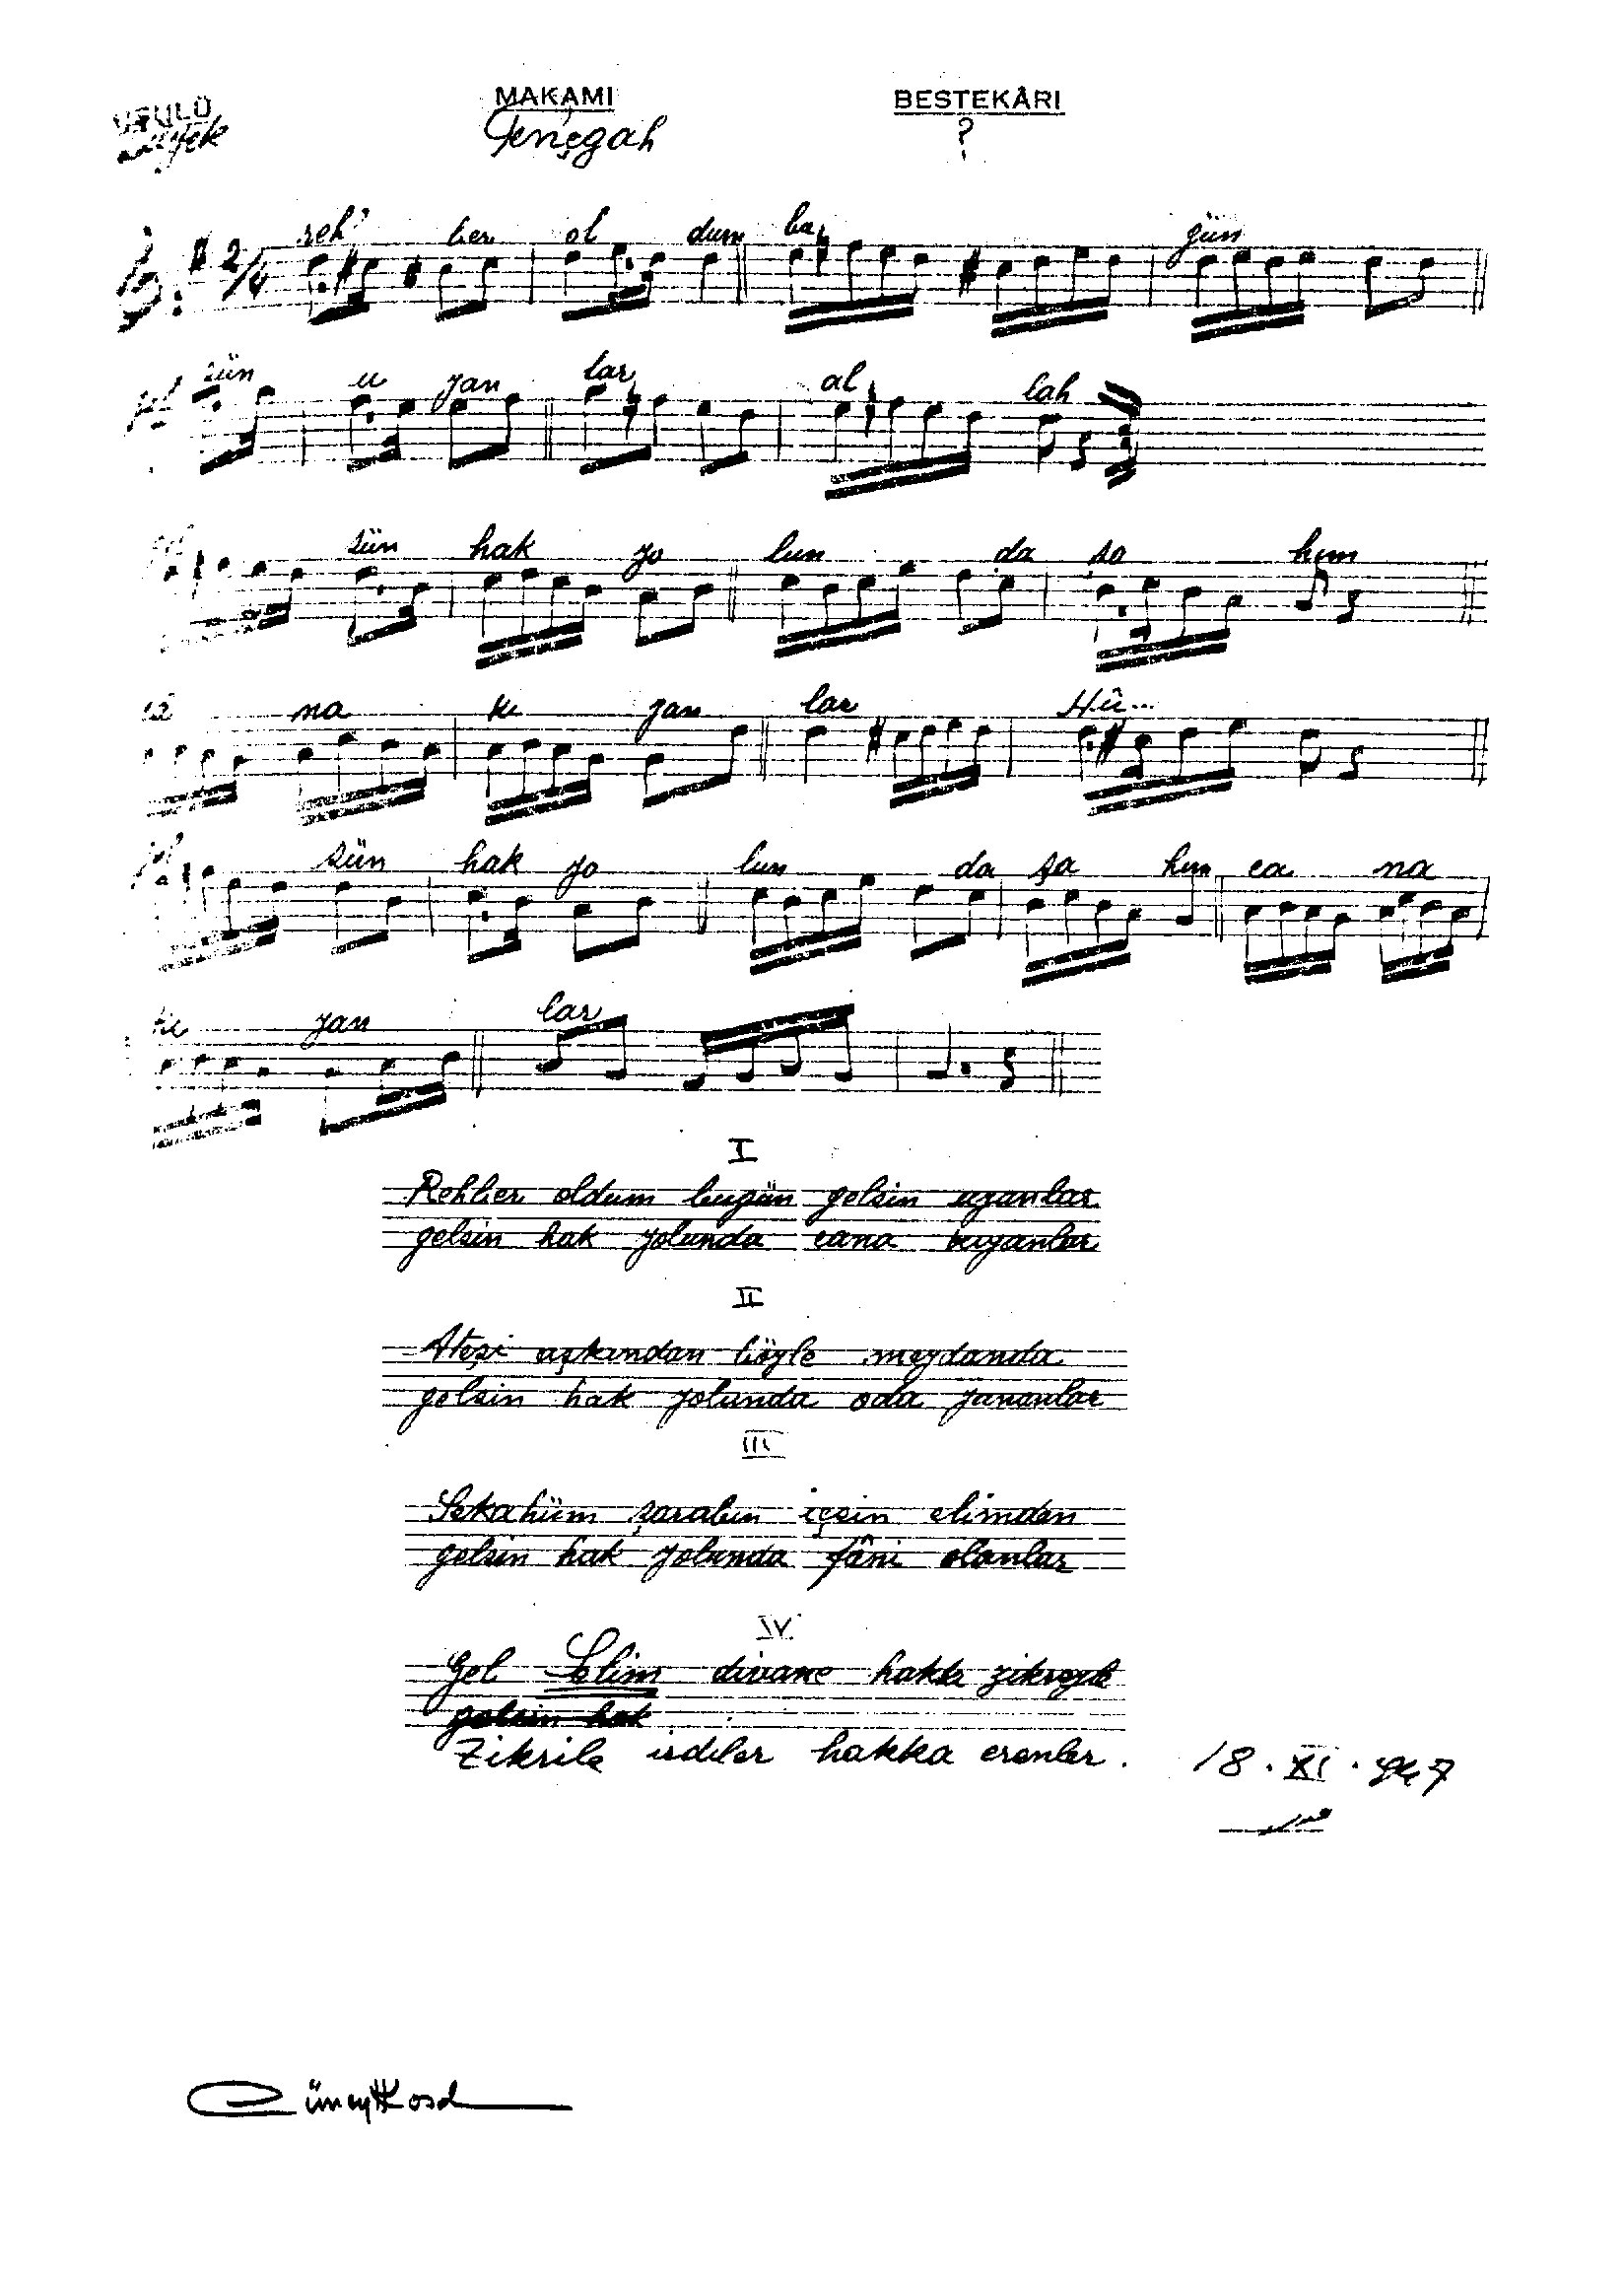 USULÜ MAKAMI BESTEKÂRI
Pençgah ?
2/4 reh ber ol dum bu gün
sün u yan lar al lah
sün hak yo lun da şa hım
na kı yan lar Hû...
sün hak yo lun da şa hım ca na
kı yan lar
I
Rehber oldum bugün gelsin uyanlar
gelsin hak yolunda cana kıyanlar
II
Ateşi aşkından böyle meydanda
gelsin hak yolunda oda yananlar
III
Sekahüm şarabın içsin elimden
gelsin hak yolunda fâni olanlar
IV
Gel Selim divane hakkı zikreyle
gelsin hak
Zikrile irdiler hakka erenler.
18.XI.947